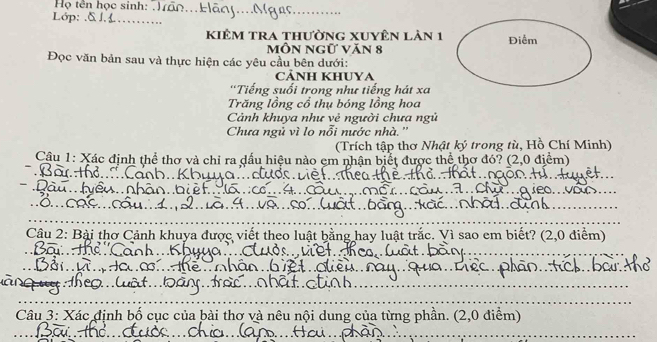 Họ tên học sinh: Trần Hằng Ngọc
Lớp: 8.1.1
KIỂM TRA THƯỜNG XUYÊN LẦN 1
MÔN NGỮ VĂN 8
Điểm
Đọc văn bản sau và thực hiện các yêu cầu bên dưới:
CẢNH KHUYA
"Tiếng suối trong như tiếng hát xa
Trăng lồng cổ thụ bóng lồng hoa
Cảnh khuya như vẽ người chưa ngủ
Chưa ngủ vì lo nỗi nước nhà."
(Trích tập thơ Nhật ký trong tù, Hồ Chí Minh)
Câu 1: Xác định thể thơ và chỉ ra dấu hiệu nào em nhận biết được thể thơ đó? (2,0 điểm)
- Bài thơ "Cảnh Khuya" được viết theo thể thơ thất ngôn tứ tuyệt
- Dấu hiệu nhận biết là có 4 câu, mỗi câu 7 chữ gieo vần
ở các câu 1, 2 và 4 và có luật bằng trắc nhất định
Câu 2: Bài thơ Cảnh khuya được viết theo luật bằng hay luật trắc. Vì sao em biết? (2,0 điểm)
Bài thơ "Cảnh Khuya" được viết theo luật bằng
Bởi vì ta có thể nhận biết điều này qua việc phân tích bài thơ
theo luật bằng trắc nhất định
Câu 3: Xác định bố cục của bài thơ và nêu nội dung của từng phần. (2,0 điểm)
Bài thơ được chia làm hai phần: